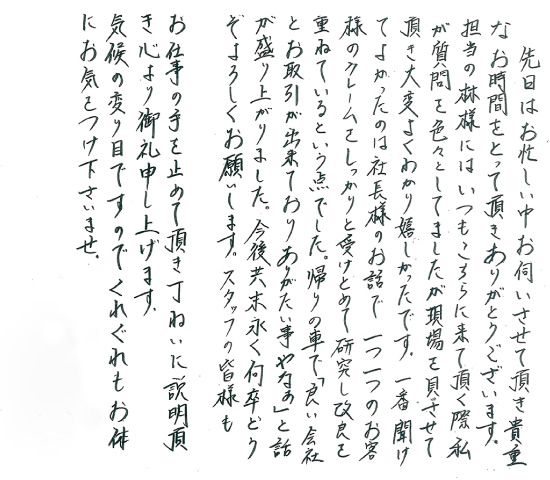 先日はお忙しい中お伺いさせて頂き貴重
なお時間をとって頂きありがとうございます。
担当の林様にはいつもこちらに来て頂く際私
が質問を色々としてましたが現場を見させて
頂き大変よくわかり嬉しかったです。一番聞け
てよかったのは社長様のお話で一つ一つのお客
様のクレームをしっかりと受けとめて研究し改良を
重ねているという点でした。帰りの車で「良い会社
とお取引が出来ておりありがたい事やなぁ」と話
が盛り上がりました。今後共末永く何卒どう
ぞよろしくお願いします。スタッフの皆様も
お仕事の手を止めて頂き丁ねいに説明頂
き心より御礼申し上げます。
気候の変り目ですのでくれぐれもお体
にお気をつけ下さいませ。